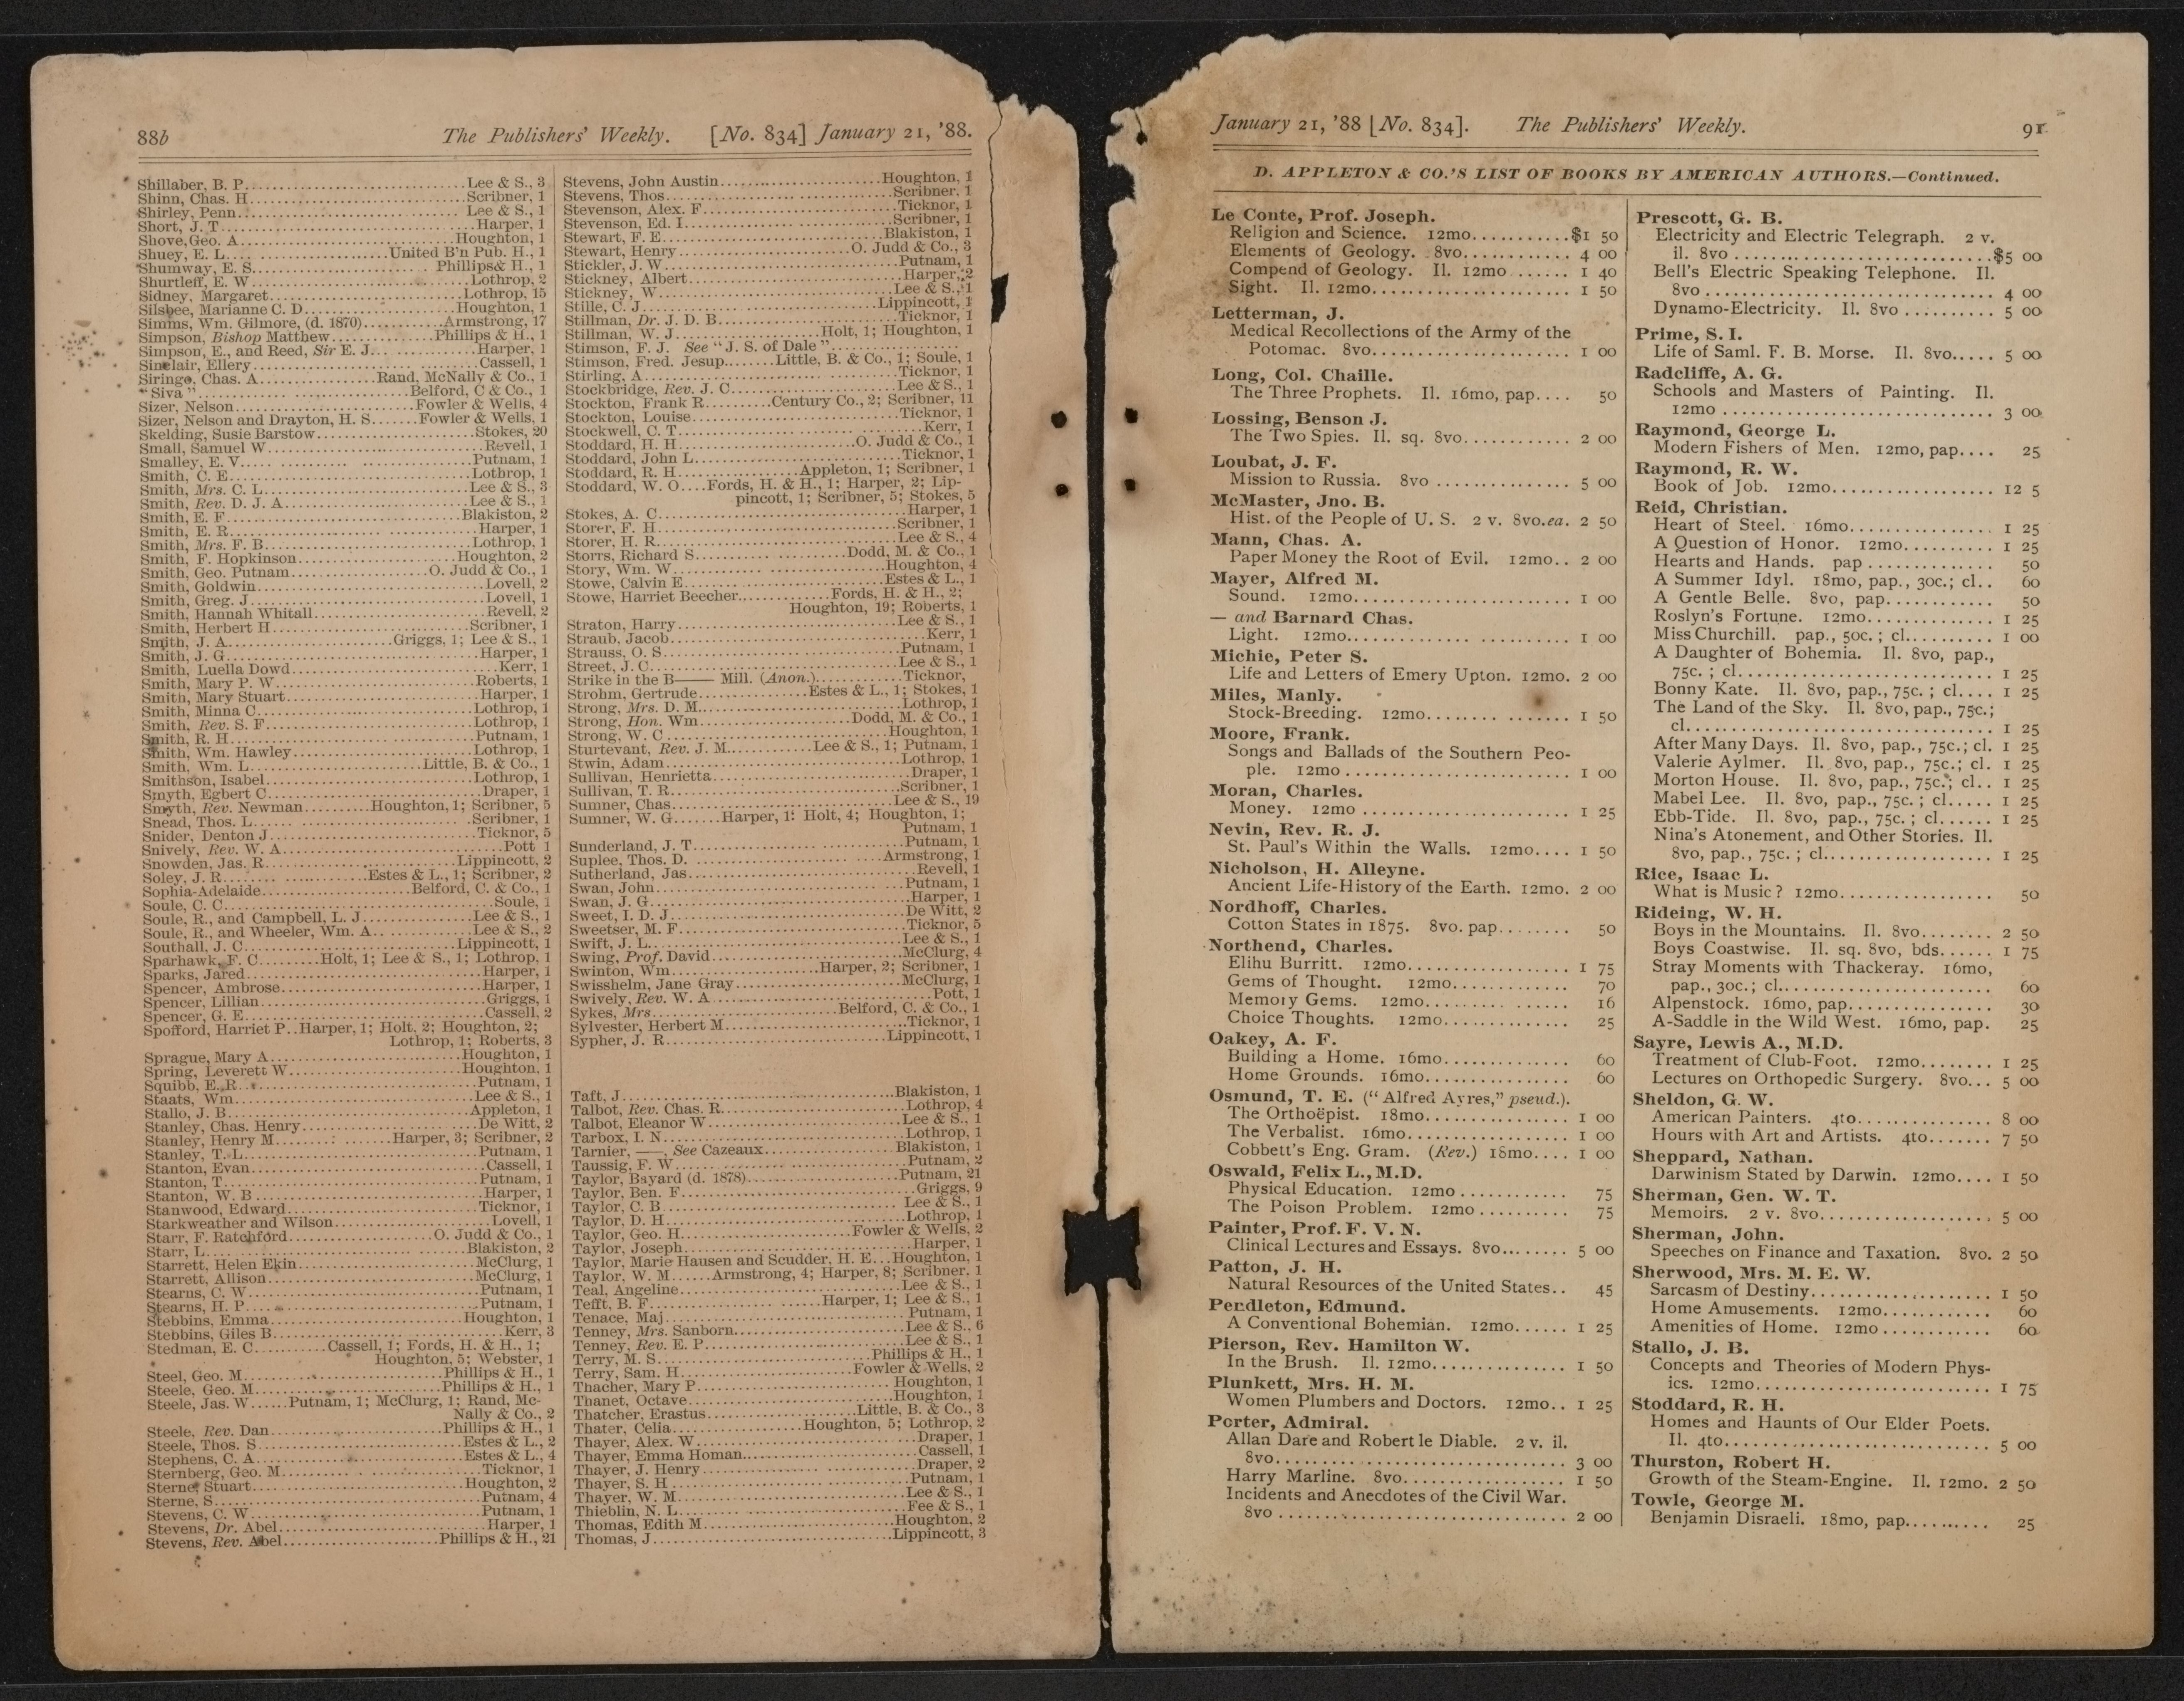 88b The Publishers' Weekly. [No. 834] January 21, '88.
Shillaber, B. P. Lee & S., 3
Shinn, Chas. H. Scribner, 1
Shirley, Penn. Lee & S., 1
Short, J. T. Harper, 1
Shove, Geo. A. Houghton, 1
Shuey, E. L. United B'n Pub. H., 1
Shumway, E. S. Phillips & H., 1
Shurtleff, E. W. Lothrop, 2
Sidney, Margaret. Lothrop, 15
Silsbee, Marianne C. D. Houghton, 1
Simms, Wm. Gilmore, (d. 1870). Armstrong, 17
Simpson, Bishop Matthew. Phillips & H., 1
Simpson, E., and Reed, Sir E. J. Harper, 1
Sinclair, Ellery. Cassell, 1
Siringo, Chas. A. Rand, McNally & Co., 1
"Siva" Belford, C & Co., 1
Sizer, Nelson. Fowler & Wells, 4
Sizer, Nelson and Drayton, H. S. Fowler & Wells, 1
Skelding, Susie Barstow. Stokes, 20
Small, Samuel W. Revell, 1
Smalley, E. V. Putnam, 1
Smith, C. E. Lothrop, 1
Smith, Mrs. C. L. Lee & S., 3
Smith, Rev. D. J. A. Lee & S., 1
Smith, E. F. Blakiston, 2
Smith, E. R. Harper, 1
Smith, Mrs. F. B. Lothrop, 1
Smith, F. Hopkinson. Houghton, 2
Smith, Geo. Putnam. O. Judd & Co., 1
Smith, Goldwin. Lovell, 2
Smith, Greg. J. Lovell, 1
Smith, Hannah Whitall. Revell, 2
Smith, Herbert H. Scribner, 1
Smith, J. A. Griggs, 1; Lee & S., 1
Smith, J. G. Harper, 1
Smith, Luella Dowd. Kerr, 1
Smith, Mary P. W. Roberts, 1
Smith, Mary Stuart. Harper, 1
Smith, Minna C. Lothrop, 1
Smith, Rev. S. F. Lothrop, 1
Smith, R. H. Putnam, 1
Smith, Wm. Hawley. Lothrop, 1
Smith, Wm. L. Little, B. & Co., 1
Smithson, Isabel. Lothrop, 1
Smyth, Egbert C. Draper, 1
Smyth, Rev. Newman. Houghton, 1; Scribner, 5
Snead, Thos. L. Scribner, 1
Snider, Denton J. Ticknor, 5
Snively, Rev. W. A. Pott 1
Snowden, Jas. R. Lippincott, 2
Soley, J. R. Estes & L., 1; Scribner, 2
Sophia-Adelaide. Belford, C. & Co., 1
Soule, C. C. Soule, 1
Soule, R., and Campbell, L. J. Lee & S., 1
Soule, R., and Wheeler, Wm. A. Lee & S., 2
Southall, J. C. Lippincott, 1
Sparhawk, F. C. Holt, 1; Lee & S., 1; Lothrop, 1
Sparks, Jared. Harper, 1
Spencer, Ambrose. Harper, 1
Spencer, Lillian. Griggs, 1
Spencer, G. E. Cassell, 2
Spofford, Harriet P. Harper, 1; Holt, 2; Houghton, 2;
Lothrop, 1; Roberts, 3
Sprague, Mary A. Houghton, 1
Spring, Leverett W. Houghton. 1
Squibb, E. R. Putnam, 1
Staats, Wm. Lee & S., 1
Stallo, J. B. Appleton, 1
Stanley, Chas. Henry. De Witt, 2
Stanley, Henry M. Harper, 3; Scribner, 2
Stanley, T. L. Putnam, 1
Stanton, Evan. Cassell, 1
Stanton, T. Putnam, 1
Stanton, W. B. Harper, 1
Stanwood, Edward. Ticknor, 1
Starkweather and Wilson. Lovell, 1
Starr, F. Ratchford. O. Judd & Co., 1
Starr, L. Blakiston, 2
Starrett, Helen Ekin. McClurg, 1
Starrett, Allison. McClurg, 1
Stearns, C. W. Putnam, 1
Stearns, H. P. Putnam, 1
Stebbins, Emma. Houghton, 1
Stebbins, Giles B. Kerr, 3
Stedman, E. C. Cassell, 1; Fords, H. & H., 1;
Houghton, 5; Webster, 1
Steel, Geo. M. Phillips & H., 1
Steele, Geo. M. Phillips & H., 1
Steele, Jas. W. Putnam, 1; McClurg, 1; Rand, Mc-
Nally & Co., 2
Steele, Rev. Dan. Phillips & H., 1
Steele, Thos. S. Estes & L., 2
Stephens, C. A. Estes & L., 4
Sternberg, Geo. M. Ticknor, 1
Sterne, Stuart. Houghton, 2
Sterne, S. Putnam, 4
Stevens, C. W. Putnam, 1
Stevens, Dr. Abel. Harper, 1
Stevens, Rev. Abel. Phillips & H., 21
Stevens, John Austin. Houghton, 1
Stevens, Thos. Scribner, 1
Stevenson, Alex. F. Ticknor, 1
Stevenson, Ed. I. Scribner, 1
Stewart, F. E. Blakiston, 1
Stewart, Henry. O. Judd & Co., 3
Stickler, J. W. Putnam, 1
Stickney, Albert. Harper, 2
Stickney, W. Lee & S., 1
Stille, C. J. Lippincott, 1
Stillman, Dr. J. D. B. Ticknor, 1
Stillman, W. J. Holt, 1; Houghton, 1
Stimson, F. J. See "J. S. of Dale"
Stimson, Fred. Jesup. Little, B. & Co., 1; Soule, 1
Stirling, A. Ticknor, 1
Stockbridge, Rev. J. C. Lee & S., 1
Stockton, Frank R. Century Co., 2; Scribner, 11
Stockton, Louise. Ticknor, 1
Stockwell, C. T. Kerr, 1
Stoddard, H. H. O. Judd & Co., 1
Stoddard, John L. Ticknor, 1
Stoddard, R. H. Appleton, 1; Scribner, 1
Stoddard, W. O. Fords, H. & H., 1; Harper, 2; Lip-
pincott, 1; Scribner, 5; Stokes, 5
Stokes, A. C. Harper, 1
Storer, F. H. Scribner, 1
Storer, H. R. Lee & S., 4
Storrs, Richard S. Dodd, M. & Co., 1
Story, Wm. W. Houghton, 4
Stowe, Calvin E. Estes & L., 1
Stowe, Harriet Beecher. Fords, H. & H., 2;
Houghton, 19; Roberts, 1
Straton, Harry. Lee & S., 1
Straub, Jacob. Kerr, 1
Strauss, O. S. Putnam, 1
Street, J. C. Lee & S., 1
Strike in the B—— Mill. (Anon.). Ticknor,
Strohm, Gertrude. Estes & L., 1; Stokes, 1
Strong, Mrs. D. M. Lothrop, 1
Strong, Hon. Wm. Dodd, M. & Co., 1
Strong, W. C. Houghton, 1
Sturtevant, Rev. J. M. Lee & S., 1; Putnam, 1
Stwin, Adam. Lothrop, 1
Sullivan, Henrietta. Draper, 1
Sullivan, T. R. Scribner, 1
Sumner, Chas. Lee & S., 19
Sumner, W. G. Harper, 1: Holt, 4; Houghton, 1;
Putnam, 1
Sunderland, J. T. Putnam, 1
Suplee, Thos. D. Armstrong, 1
Sutherland, Jas. Revell, 1
Swan, John. Putnam, 1
Swan, J. G. Harper, 1
Sweet, I. D. J. De Witt, 2
Sweetser, M. F. Ticknor, 5
Swift, J. L. Lee & S., 1
Swing, Prof. David. McClurg, 4
Swinton, Wm. Harper, 2; Scribner, 1
Swisshelm, Jane Gray. McClurg, 1
Swively, Rev. W. A. Pott, 1
Sykes, Mrs. Belford, C. & Co., 1
Sylvester, Herbert M. Ticknor, 1
Sypher, J. R. Lippincott, 1
Taft, J. Blakiston, 1
Talbot, Rev. Chas. R. Lothrop, 4
Talbot, Eleanor W. Lee & S., 1
Tarbox, I. N. Lothrop, 1
Tarnier, ——, See Cazeaux. Blakiston, 1
Taussig, F. W. Putnam, 2
Taylor, Bayard (d. 1878). Putnam, 21
Taylor, Ben. F. Griggs, 9
Taylor, C. B. Lee & S., 1
Taylor, D. H. Lothrop, 1
Taylor, Geo. H. Fowler & Wells, 2
Taylor, Joseph. Harper, 1
Taylor, Marie Hausen and Scudder, H. E. Houghton, 1
Taylor, W. M. Armstrong, 4; Harper, 8; Scribner, 1
Teal, Angeline. Lee & S., 1
Tefft, B. F. Harper, 1; Lee & S., 1
Tenace, Maj. Putnam, 1
Tenney, Mrs. Sanborn. Lee & S., 6
Tenney, Rev. E. P. Lee & S., 1
Terry, M. S. Phillips & H., 1
Terry, Sam. H. Fowler & Wells, 2
Thacher, Mary P. Houghton, 1
Thanet, Octave. Houghton, 1
Thatcher, Erastus. Little, B. & Co., 3
Thater, Celia. Houghton, 5; Lothrop, 2
Thayer, Alex. W. Draper, 1
Thayer, Emma Homan. Cassell, 1
Thayer, J. Henry. Draper, 2
Thayer, S. H. Putnam, 1
Thayer, W. M. Lee & S., 1
Thieblin, N. L. Fee & S., 1
Thomas, Edith M. Houghton, 2
Thomas, J. Lippincott, 3
January 21, '88 [No. 834]. The Publishers' Weekly. 91
D. APPLETON & CO.'S LIST OF BOOKS BY AMERICAN AUTHORS.—Continued.
Le Conte, Prof. Joseph.
Religion and Science. 12mo. $1 50
Elements of Geology. 8vo. 4 00
Compend of Geology. Il. 12mo 1 40
Sight. Il. 12mo. 1 50
Letterman, J.
Medical Recollections of the Army of the
Potomac. 8vo. 1 00
Long, Col. Chaille.
The Three Prophets. Il. 16mo, pap. 50
Lossing, Benson J.
The Two Spies. Il. sq. 8vo. 2 00
Loubat, J. F.
Mission to Russia. 8vo 5 00
McMaster, Jno. B.
Hist. of the People of U. S. 2 v. 8vo. ea. 2 50
Mann, Chas. A.
Paper Money the Root of Evil. 12mo. 2 00
Mayer, Alfred M.
Sound. 12mo. 1 00
— and Barnard Chas.
Light. 12mo. 1 00
Michie, Peter S.
Life and Letters of Emery Upton. 12mo. 2 00
Miles, Manly.
Stock-Breeding. 12mo. 1 50
Moore, Frank.
Songs and Ballads of the Southern Peo-
ple. 12mo 1 00
Moran, Charles.
Money. 12mo 1 25
Nevin, Rev. R. J.
St. Paul's Within the Walls. 12mo. 1 50
Nicholson, H. Alleyne.
Ancient Life-History of the Earth. 12mo. 2 00
Nordhoff, Charles.
Cotton States in 1875. 8vo. pap. 50
Northend, Charles.
Elihu Burritt. 12mo. 1 75
Gems of Thought. 12mo. 70
Memory Gems. 12mo. 16
Choice Thoughts. 12mo. 25
Oakey, A. F.
Building a Home. 16mo. 60
Home Grounds. 16mo. 60
Osmund, T. E. ("Alfred Ayres," pseud.).
The Orthoëpist. 18mo. 1 00
The Verbalist. 16mo. 1 00
Cobbett's Eng. Gram. (Rev.) 18mo. 1 00
Oswald, Felix L., M.D.
Physical Education. 12mo 75
The Poison Problem. 12mo 75
Painter, Prof. F. V. N.
Clinical Lectures and Essays. 8vo. 5 00
Patton, J. H.
Natural Resources of the United States. 45
Pendleton, Edmund.
A Conventional Bohemian. 12mo. 1 25
Pierson, Rev. Hamilton W.
In the Brush. Il. 12mo. 1 50
Plunkett, Mrs. H. M.
Women Plumbers and Doctors. 12mo. 1 25
Porter, Admiral.
Allan Dare and Robert le Diable. 2 v. il.
8vo. 3 00
Harry Marline. 8vo. 1 50
Incidents and Anecdotes of the Civil War.
8vo 2 00
Prescott, G. B.
Electricity and Electric Telegraph. 2 v.
il. 8vo $5 00
Bell's Electric Speaking Telephone. Il.
8vo 4 00
Dynamo-Electricity. Il. 8vo 5 00
Prime, S. I.
Life of Saml. F. B. Morse. Il. 8vo. 5 00
Radcliffe, A. G.
Schools and Masters of Painting. Il.
12mo 3 00
Raymond, George L.
Modern Fishers of Men. 12mo, pap. 25
Raymond, R. W.
Book of Job. 12mo. 12 5
Reid, Christian.
Heart of Steel. 16mo. 1 25
A Question of Honor. 12mo. 1 25
Hearts and Hands. pap 50
A Summer Idyl. 18mo, pap., 30c.; cl. 60
A Gentle Belle. 8vo, pap. 50
Roslyn's Fortune. 12mo. 1 25
Miss Churchill. pap., 50c.; cl. 1 00
A Daughter of Bohemia. Il. 8vo, pap.,
75c.; cl. 1 25
Bonny Kate. Il. 8vo, pap., 75c.; cl. 1 25
The Land of the Sky. Il. 8vo, pap., 75c.;
cl. 1 25
After Many Days. Il. 8vo, pap., 75c.; cl. 1 25
Valerie Aylmer. Il. 8vo, pap., 75c.; cl. 1 25
Morton House. Il. 8vo, pap., 75c.; cl. 1 25
Mabel Lee. Il. 8vo, pap., 75c.; cl. 1 25
Ebb-Tide. Il. 8vo, pap., 75c.; cl. 1 25
Nina's Atonement, and Other Stories. Il.
8vo, pap., 75c.; cl. 1 25
Rice, Isaac L.
What is Music? 12mo. 50
Rideing, W. H.
Boys in the Mountains. Il. 8vo. 2 50
Boys Coastwise. Il. sq. 8vo, bds. 1 75
Stray Moments with Thackeray. 16mo,
pap., 30c.; cl. 60
Alpenstock. 16mo, pap. 30
A-Saddle in the Wild West. 16mo, pap. 25
Sayre, Lewis A., M.D.
Treatment of Club-Foot. 12mo. 1 25
Lectures on Orthopedic Surgery. 8vo. 5 00
Sheldon, G. W.
American Painters. 4to. 8 00
Hours with Art and Artists. 4to. 7 50
Sheppard, Nathan.
Darwinism Stated by Darwin. 12mo. 1 50
Sherman, Gen. W. T.
Memoirs. 2 v. 8vo. 5 00
Sherman, John.
Speeches on Finance and Taxation. 8vo. 2 50
Sherwood, Mrs. M. E. W.
Sarcasm of Destiny. 1 50
Home Amusements. 12mo. 60
Amenities of Home. 12mo 60
Stallo, J. B.
Concepts and Theories of Modern Phys-
ics. 12mo. 1 75
Stoddard, R. H.
Homes and Haunts of Our Elder Poets.
Il. 4to. 5 00
Thurston, Robert H.
Growth of the Steam-Engine. Il. 12mo. 2 50
Towle, George M.
Benjamin Disraeli. 18mo, pap. 25